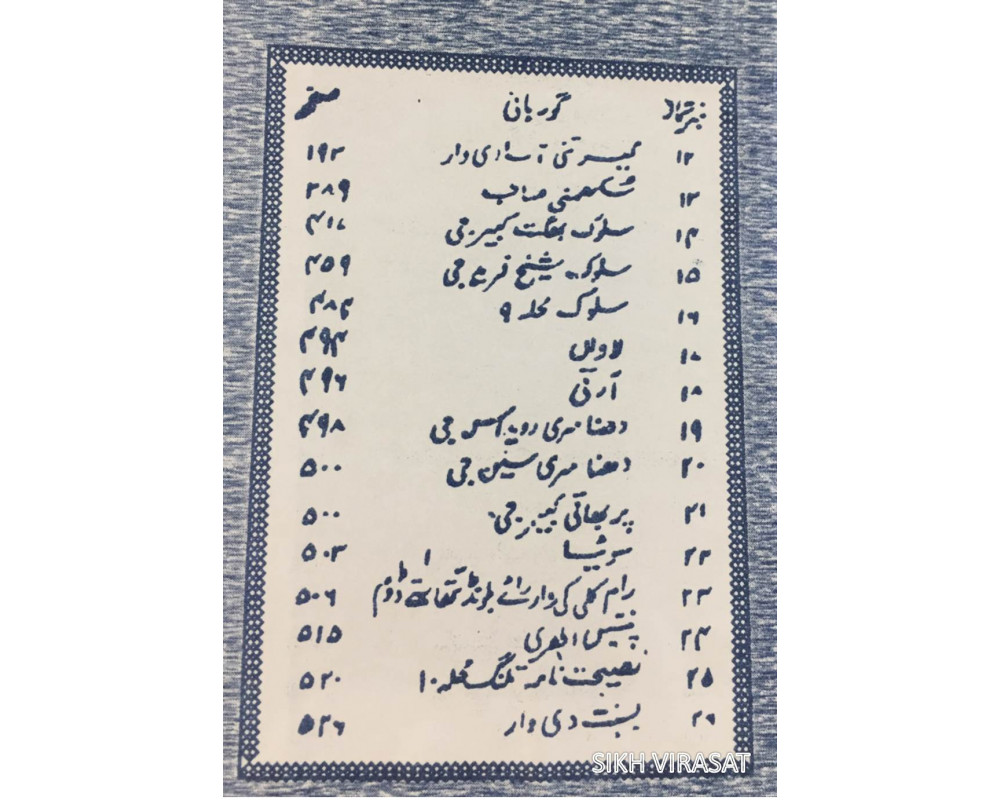 نمبر شمار گور بانی صفحہ
۱۲ کیرتنی آسا دی وار ۱۹۲
۱۳ سکھمنی صاحب ۳۸۹
۱۴ سلوک بھگت کبیر جی ۴۱۷
۱۵ سلوک شیخ فرید جی ۴۵۹
۱۶ سلوک محلہ ۹ ۴۸۴
۱۷ لاواں ۴۹۴
۱۸ آرتی ۴۹۶
۱۹ دھنا سری رویداس جی ۴۹۸
۲۰ دھنا سری سینن جی ۵۰۰
۲۱ پربھاتی کبیر جی ۵۰۰
۲۲ سوئیا ۵۰۳
۲۳ رام کلی کی وار رائے بلونڈ تتھا ستے ڈوم ۵۰۶
۲۴ پینتیس اکھری ۵۱۵
۲۵ نصیحت نامہ تلنگ محلہ ۱۰ ۵۲۰
۲۶ بسنت دی وار ۵۲۶
SIKH VIRASAT